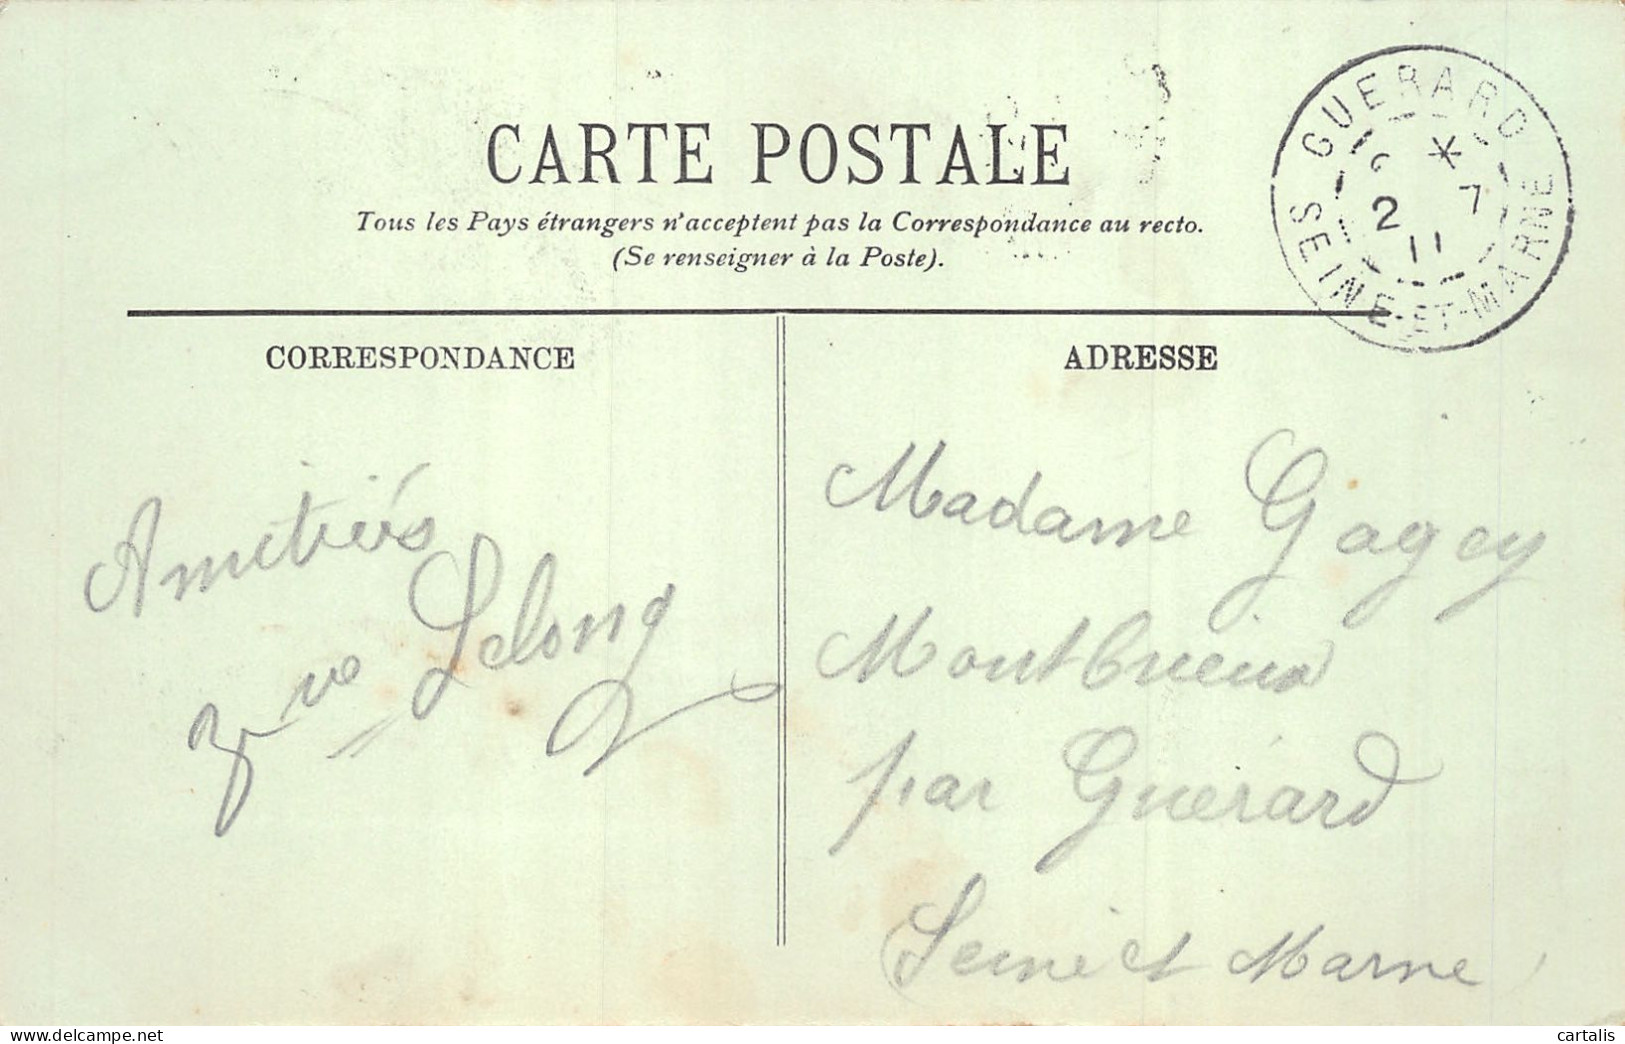 CARTE POSTALE
Tous les Pays étrangers n'acceptent pas la Correspondance au recto.
(Se renseigner à la Poste).
GUERARD
* 7
2
11
SEINE-ET-MARNE
CORRESPONDANCE
ADRESSE
Amitiés
Vve Lelong
Madame Gagey
Montbrieux
par Guérard
Seine et Marne
www.delcampe.net
cartalis